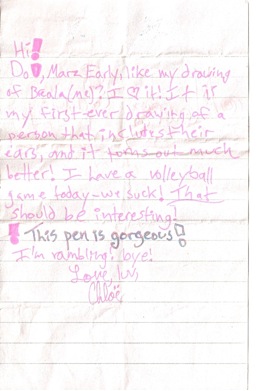 Hi!
Do U, Mara Early, like my drawing
of (me)? I ♡ it! It is
my first ever drawing of a
person that includes their
ears, and it turns out much
better! I have a volleyball
game today - we suck! That
should be interesting!
! This pen is gorgeous!
I'm rambling! bye!
Love, luv,
Chloë